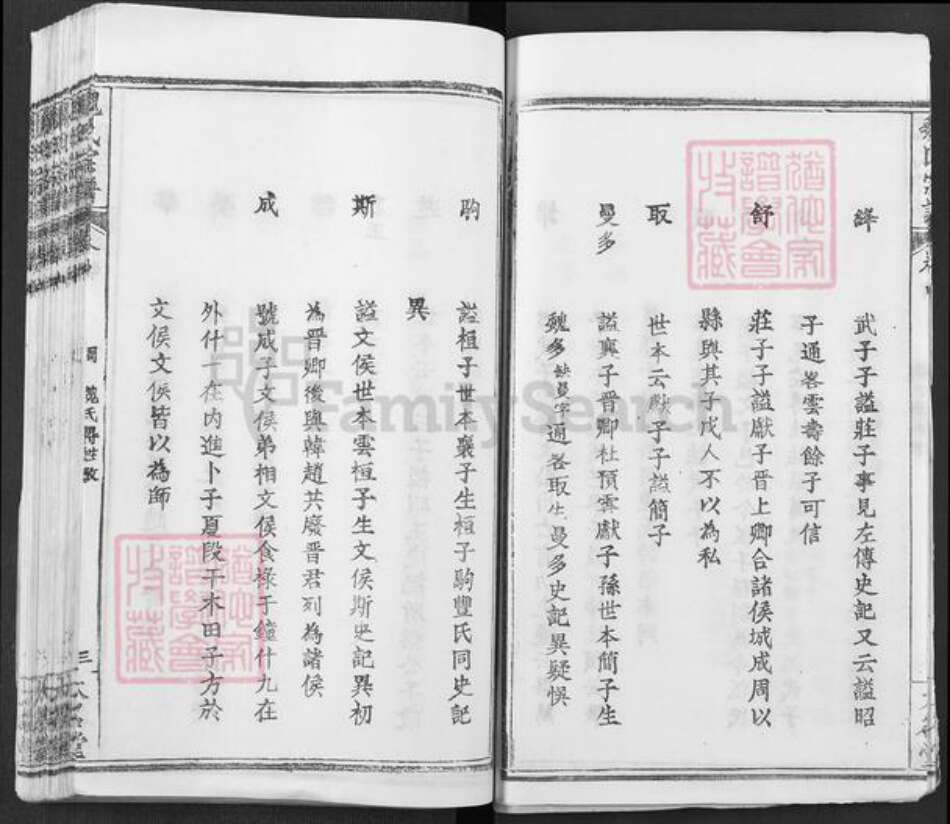 絳
武子子謚莊子事見左傳史記又云謚昭
子通畧雲壽餘子可信
舒
莊子子謚獻子晋上卿合諸侯城成周以
縣與其子戊人不以為私
取
世本云獻子子謚簡子
曼多
謚襄子晋卿杜預雲獻子孫世本簡子生
魏多缺曼字通畧取生曼多史記異疑悞
駒
謚桓子世本襄子生桓子駒豐氏同史記
異
斯
謚文侯世本雲桓子生文侯斯史記異初
為晋卿後與韓趙共廢晋君列為諸侯
成
號成子文侯弟相文侯食祿千鐘什九在
外什一在內進卜子夏段干木田子方於
文侯文侯皆以為師
魏氏得姓攷
三
猶他家
譜學會
收藏
猶他家
譜學會
收藏
FamilySearch